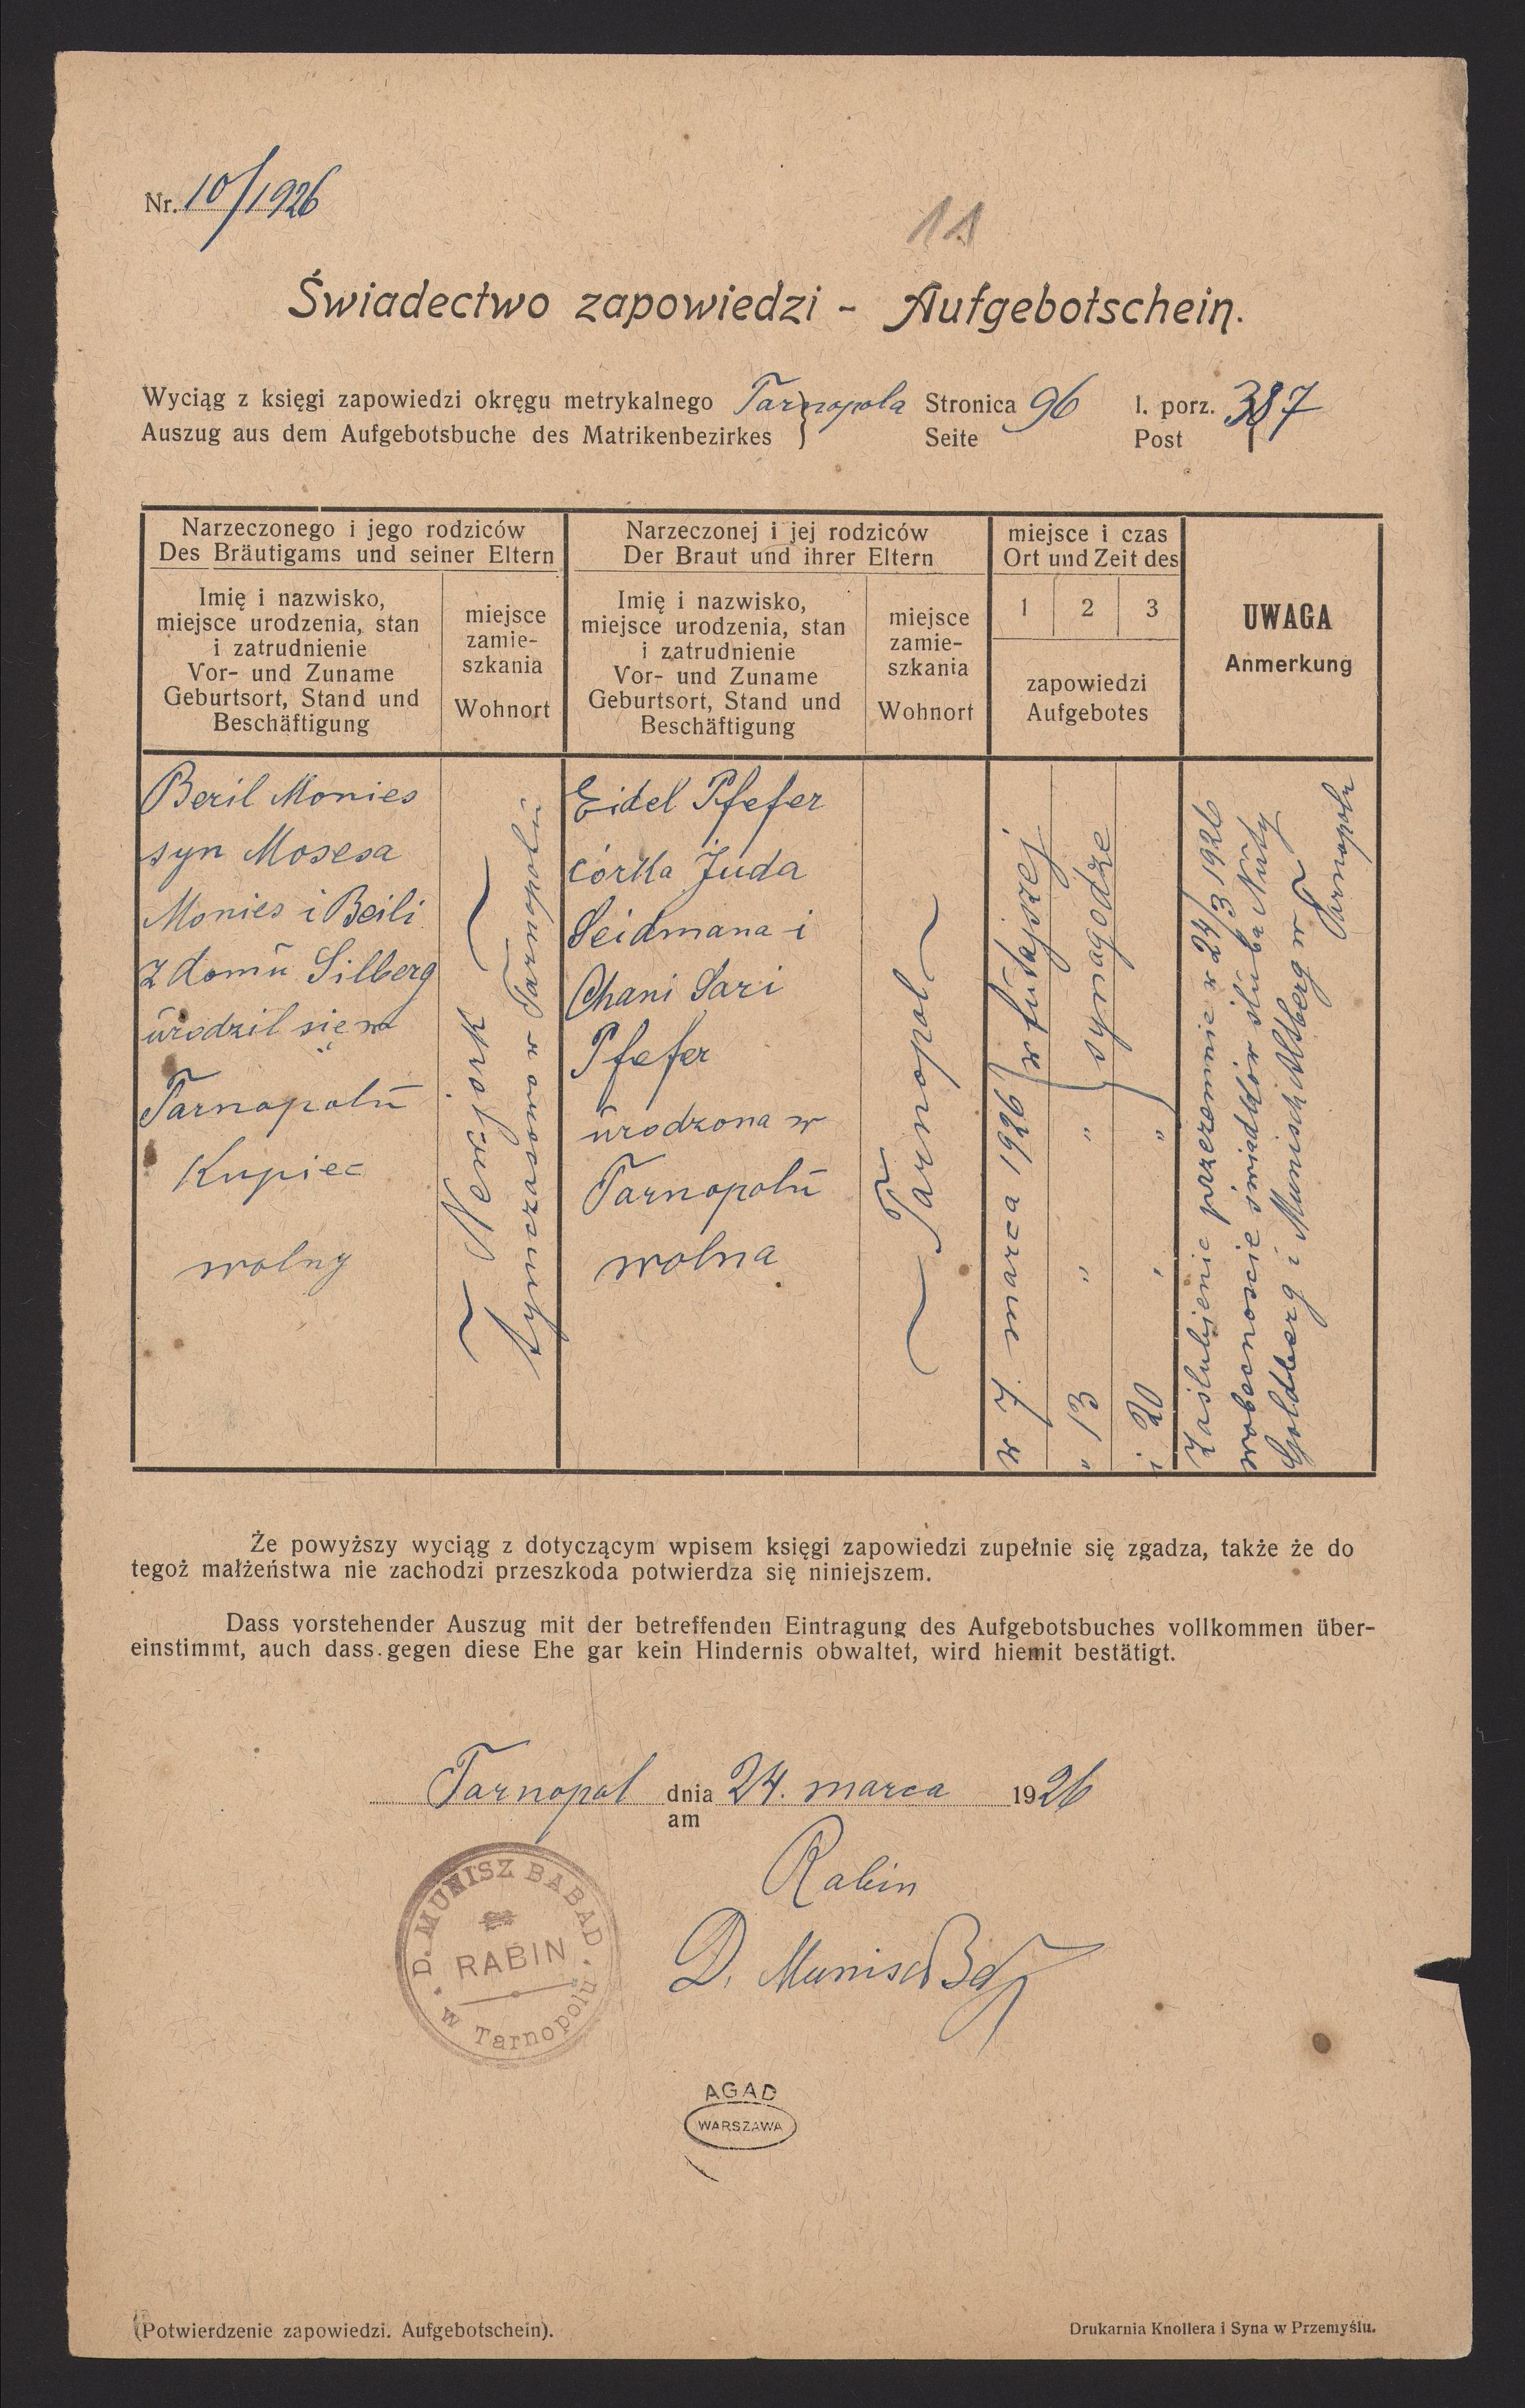 Nr. 10/1926
11
Świadectwo zapowiedzi - Aufgebotschein.
Wyciąg z księgi zapowiedzi okręgu metrykalnego Tarnopola Stronica 96 l. porz. 387
Auszug aus dem Aufgebotsbuche des Matrikenbezirkes } Seite Post
Narzeczonego i jego rodziców
Des Bräutigams und seiner Eltern
Imię i nazwisko,
miejsce urodzenia, stan
i zatrudnienie
Vor- und Zuname
Geburtsort, Stand und
Beschäftigung
miejsce
zamie-
szkania
Wohnort
Narzeczonej i jej rodziców
Der Braut und ihrer Eltern
Imię i nazwisko,
miejsce urodzenia, stan
i zatrudnienie
Vor- und Zuname
Geburtsort, Stand und
Beschäftigung
miejsce
zamie-
szkania
Wohnort
miejsce i czas
Ort und Zeit des
1 2 3
zapowiedzi
Aufgebotes
UWAGA
Anmerkung
Beril Monies
syn Mosesa
Monies i Beili
z domu Silberg
urodzil się w
Tarnopolu
Kupiec
wolny
Nerjork
tymczasowo w Tarnopolu
Eidel Pfefer
córka Juda
Seidmana i
Chani Sari
Pfefer
urodzona w
Tarnopolu
wolna
Tarnopol
w 7. marca 1926 } w tutajszej
" 13 " " } synagodze
i 20 " "
Zaślubienie przezemnie w 24/3 1926
wobecnoscie świadków ślubu Nuty
Goldberg i Munisch Alsberg w
Tarnopolu
Że powyższy wyciąg z dotyczącym wpisem księgi zapowiedzi zupełnie się zgadza, także że do
tegoż małżeństwa nie zachodzi przeszkoda potwierdza się niniejszem.
Dass vorstehender Auszug mit der betreffenden Eintragung des Aufgebotsbuches vollkommen über-
einstimmt, auch dass gegen diese Ehe gar kein Hindernis obwaltet, wird hiemit bestätigt.
Tarnopol dnia 24. marca 1926
am
Rabin
D. Munisch
D. MUNISZ BABAD
RABIN
w Tarnopolu
AGAD
WARSZAWA
(Potwierdzenie zapowiedzi. Aufgebotschein).
Drukarnia Knollera i Syna w Przemyślu.